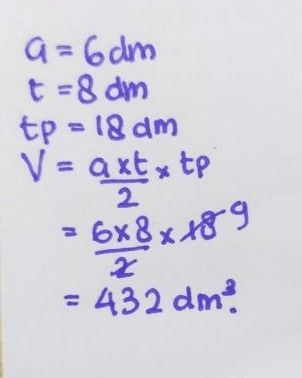 a = 6 dm
t = 8 dm
tp = 18 dm
V = a x t / 2 x tp
= 6 x 8 / 2 x 18 9
= 432 dm³.